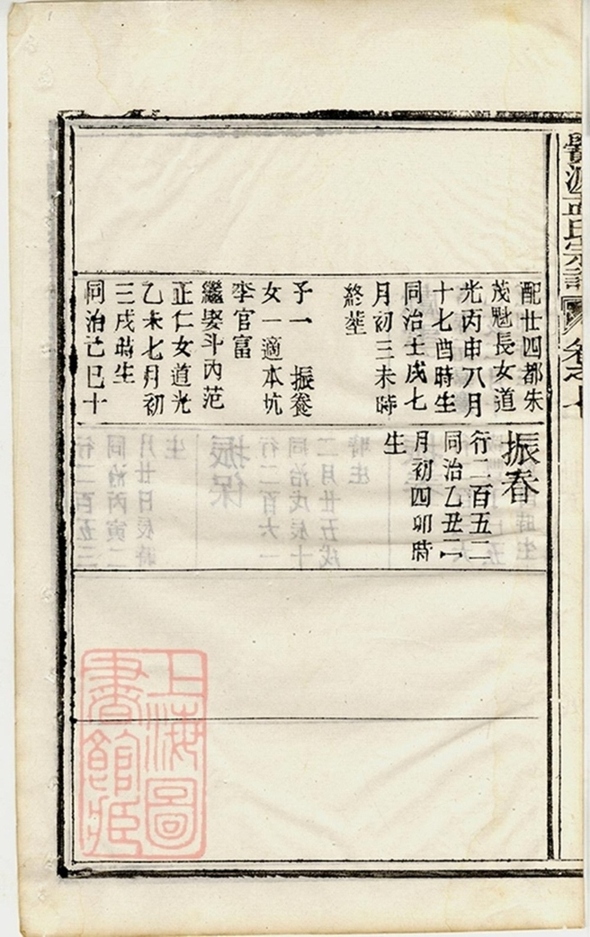 氏宗譜
卷之七
配廿四都朱
茂魁長女道
光丙申八月
十七酉時生
同治壬戌七
月初三未時
終塟
子一　振養
女一適本坑
李官富
繼娶斗內范
正仁女道光
乙未七月初
三戌時生
同治己巳十
振春
行二百五二
同治乙丑二
月初四卯時
生
上海圖
書館藏